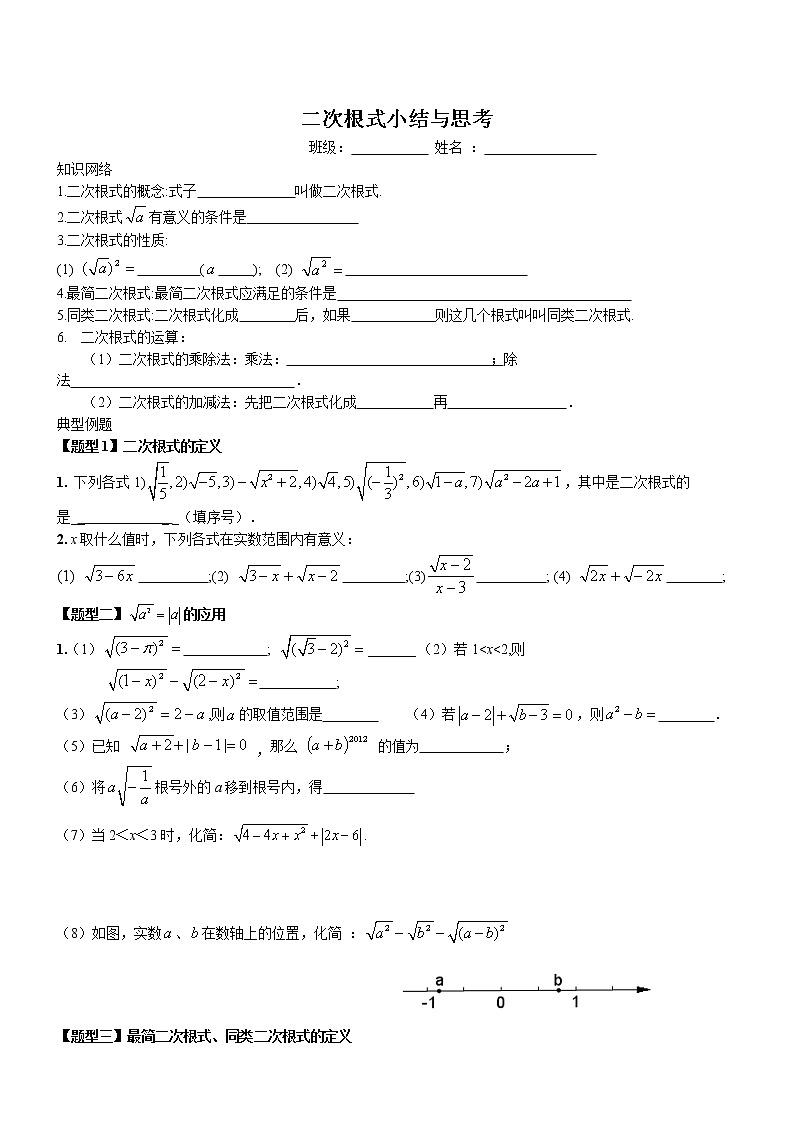 二次根式小结与思考
班级：___________ 姓名 ：________________
知识网络
1.二次根式的概念:式子______________叫做二次根式.
2.二次根式 √a 有意义的条件是________________
3.二次根式的性质:
(1) (√a)² = _________(a _____); (2) √(a²) = __________________________
4.最简二次根式:最简二次根式应满足的条件是__________________________________________
5.同类二次根式:二次根式化成________后，如果____________则这几个根式叫叫同类二次根式.
6. 二次根式的运算：
（1）二次根式的乘除法：乘法：_____________________________；除
法________________________________．
（2）二次根式的加减法：先把二次根式化成___________再_________________．
典型例题
【题型1】二次根式的定义
1. 下列各式 1)√(1/5), 2)√-5, 3)-√(x²+2), 4)√4, 5)√((-1/3)²), 6)√(1-a), 7)√(a²-2a+1)，其中是二次根式的
是______________（填序号）．
2. x取什么值时，下列各式在实数范围内有意义：
(1) √(3-6x) __________;(2) √(3-x)+√(x-2) _________;(3) √(x-2)/(x-3) __________; (4) √(2x)+√(-2x) ________;
【题型二】√(a²)=|a| 的应用
1.（1）√((3-π)²) = ____________; √((√3-2)²) = _______（2）若 1<x<2,则
√((1-x)²) - √((2-x)²) = ___________;
（3）√((a-2)²) = 2-a ,则 a 的取值范围是________ （4）若 |a-2|+√(b-3)=0，则 a²-b= ________．
（5）已知 √(a+2)+|b-1|=0 ，那么 (a+b)²⁰¹² 的值为____________；
（6）将 a√(-1/a) 根号外的 a 移到根号内，得_____________
（7）当 2＜x＜3 时，化简：√(4-4x+x²)+|2x-6|．
（8）如图，实数 a 、b 在数轴上的位置，化简 ：√(a²)-√(b²)-√((a-b)²)
a b
-1 0 1
【题型三】最简二次根式、同类二次根式的定义